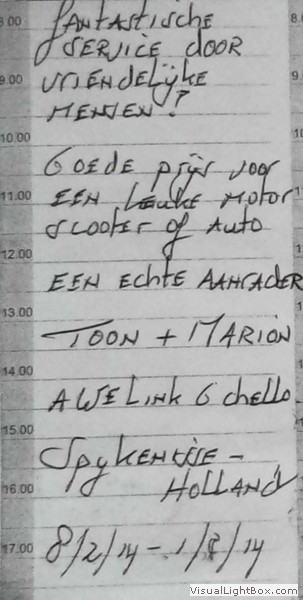 8.00 fantastische 8.
service door
9.00 vriendelijke 9.
mensen!
10.00
Goede prijs voor
11.00 EEN Leuke motor
scooter of Auto
12.00
EEN Echte AANRADER
13.00
TOON + MARION
14.00
AWELINK 6 chello.
15.00
Spykenisse -
16.00 HOLLAND
17.00 8/2/14 - 1/8/14
VisualLightBox.com